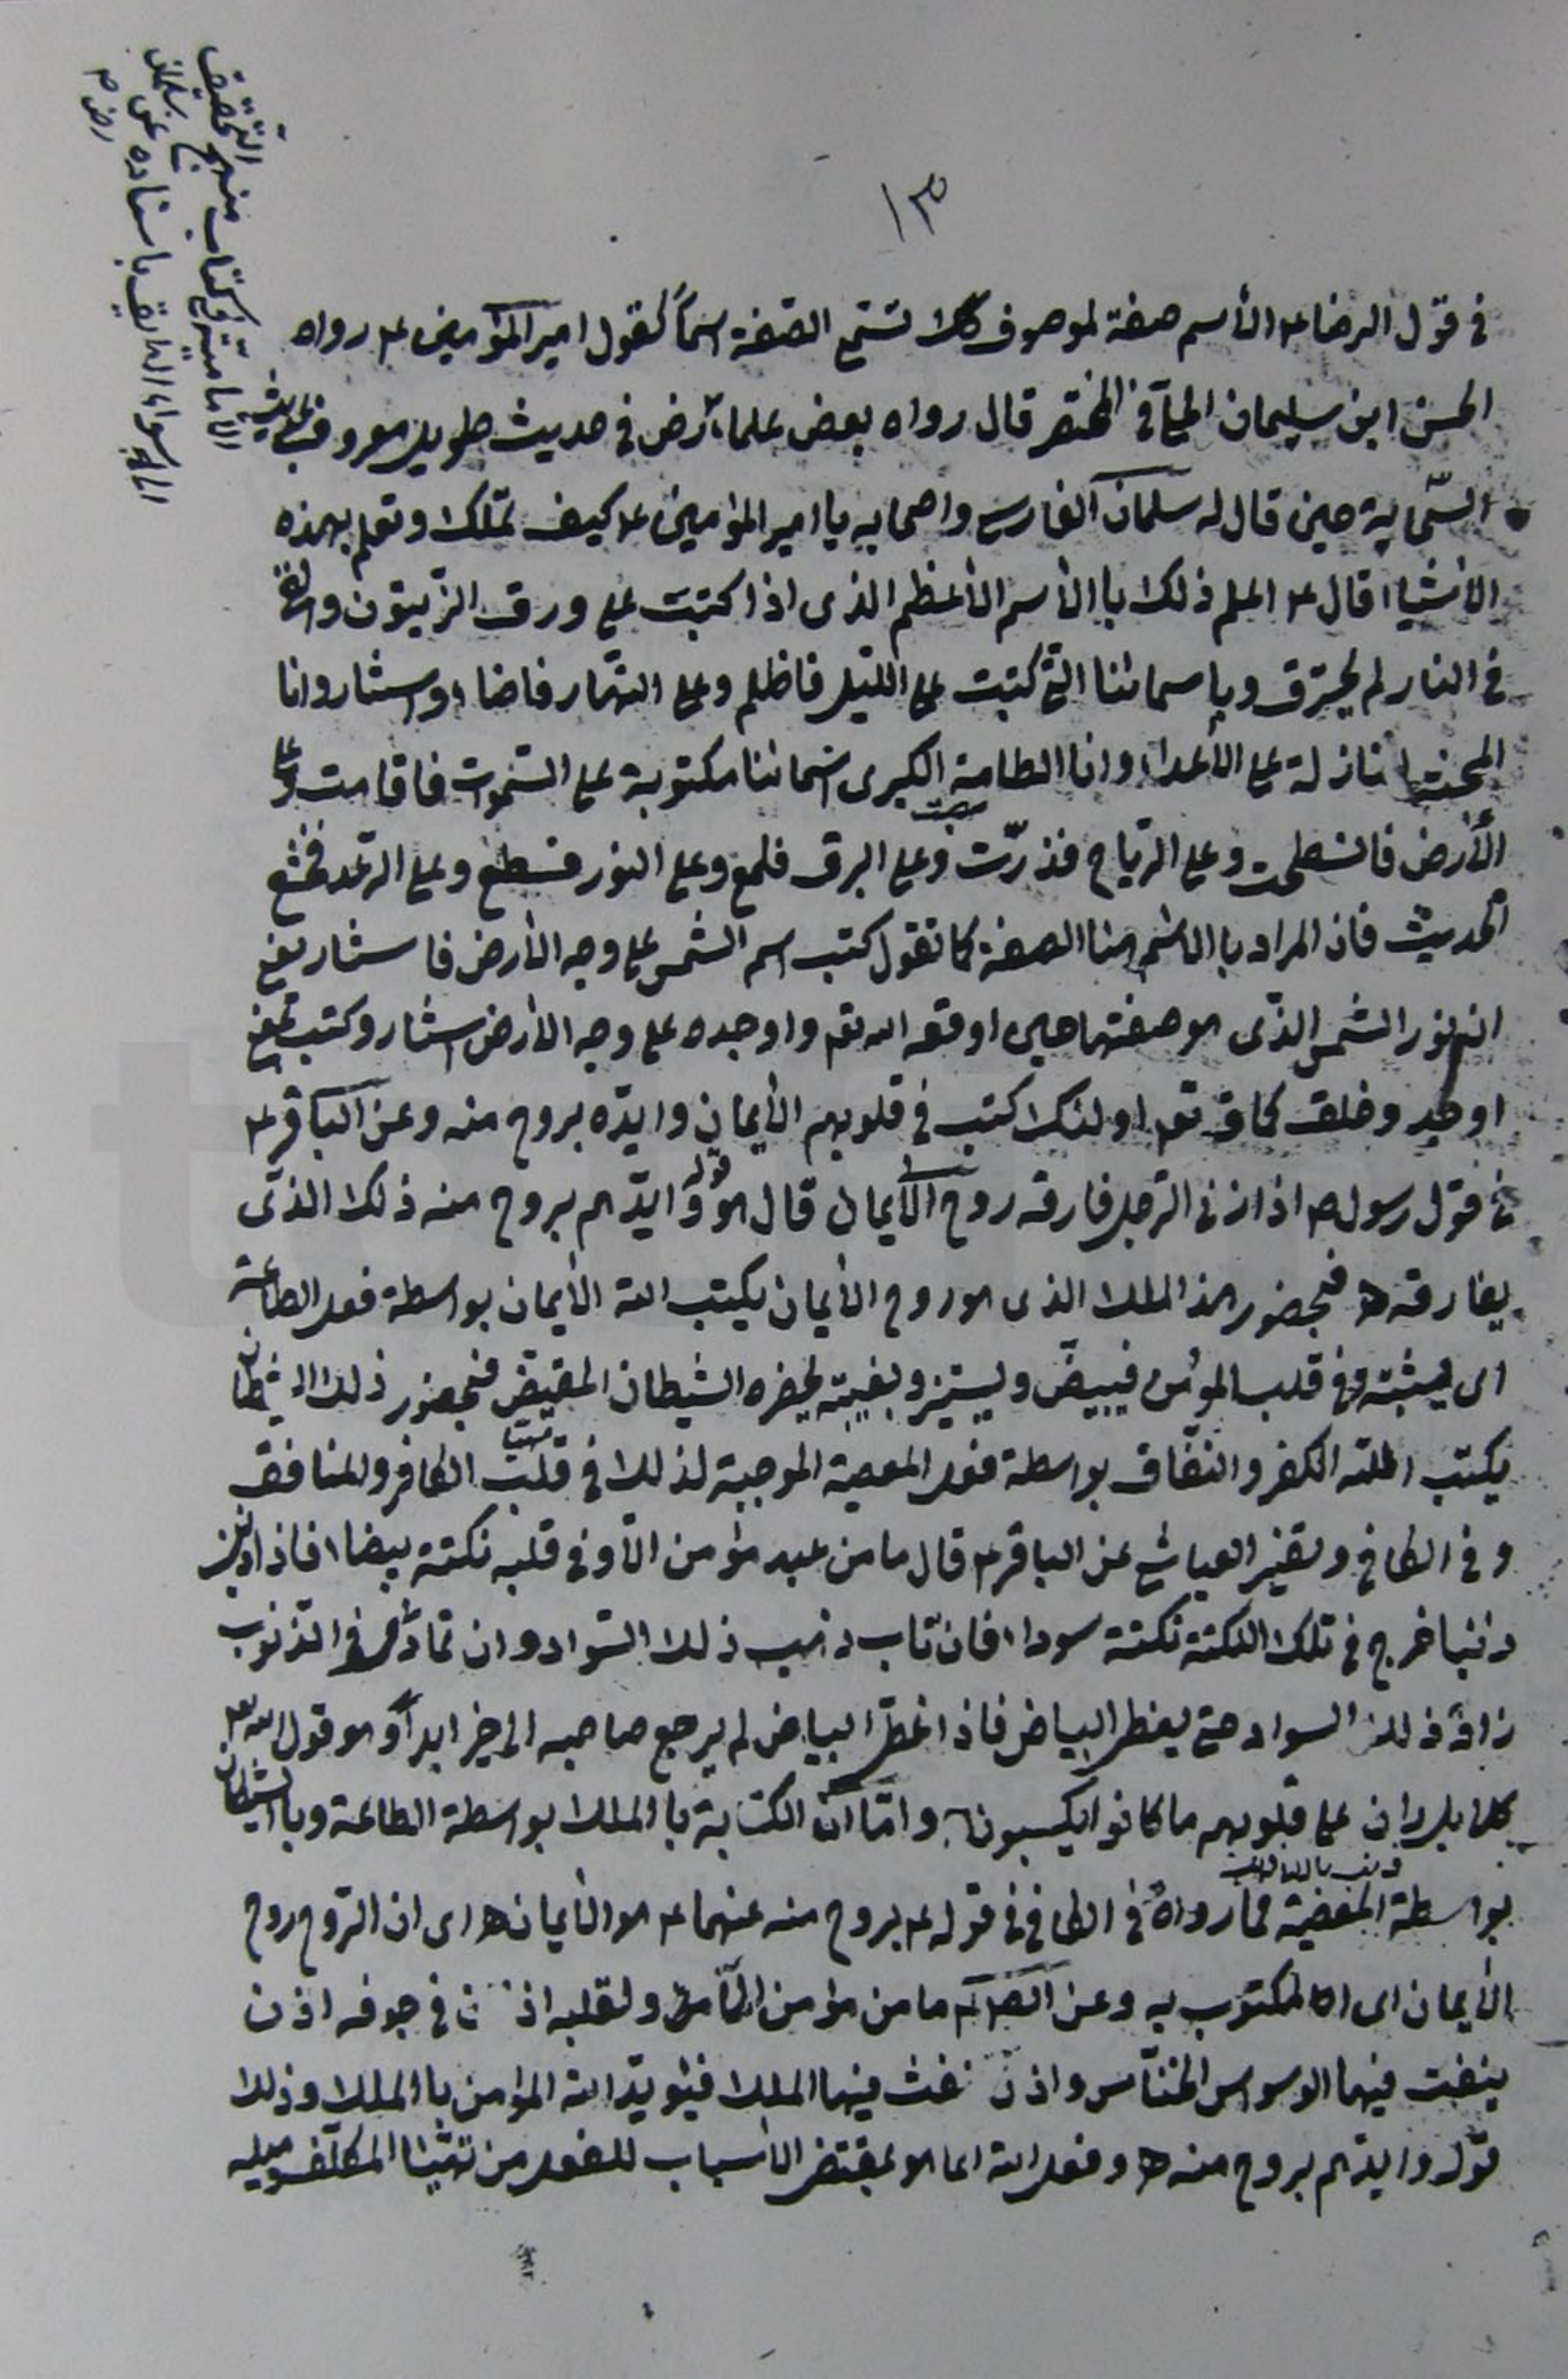 ١٣
في قول الرضا ع الأسم صفة لموصوف كك تسمى الصفة اسماً كقول امير المؤمنين ع رواه
الحسن ابن سليمان الحلي في المختصر قال رواه بعض علمائنا رض في حديث طويل معروف بحديث
السّحابة حين قال له سلمان الفارسي واصحابه يا امير المؤمنين ع كيف تملك وتعلم بهذه
الأشياء قال ع اعلم ذلك باالأسم الأعظم الذى اذا كتبت على ورق الزيتون والقى
في النار لم يحترق وبإسمائنا التي كتبت على الليل فاظلم وعلى النّهار فاضاء واستنار وانا
المحنة النازلة على الأعداء وانا الطامة الكبرى اسمائنا مكتوبة على السّموات فاقامت وعلى
الأرض فانسطحت وعلى الرّياح فذرّت وعلى البرق فلمع وعلى النور فسطع وعلى الرّعد فخشع
الحديث فان المراد باالأسم هنا الصفة كما تقول كتب اسم الشمس على وجه الأرض فاستنار يعني
ان نور الشمس الذّى هو صفتها حين اوقعه الله تع واوجده على وجه الأرض استنار وكتب بمعنى
اوجد وخلق كما ق تع اولئك كتب في قلوبهم الأيمان وايدّه بروح منه وعن الباقر ع
في قول رسول ص اذا زنى الرّجل فارقه روح الأيمان قال هو قوله وايدّهم بروح منه ذلك الذّى
يفارقه ه فبحضور هذا الملك الذى هو روح الأيمان يكتب الله الأيمان بواسطة فعل الطاعة
اى يثبته في قلب المؤمن فيبيضّ ويستنير وبغيبته يحضره الشيطان المقيّض فبحضور ذلك الشيطان
يكتب الله الكفر والنفاق بواسطة فعل المعصية الموجبة لذلك في قلب الكافر والمنافق
وفي الكافي وتفسير العياشي عن الباقر ع قال ما من عبد مؤمن الّا وفي قلبه نكتة بيضاء فاذا اذنب
ذنبا خرج في تلك النكتة نكتة سوداء فان تاب ذهب ذلك السّواد وان تمادى في الذنوب
زاد ذلك السواد حتى يغطى البياض فاذا غطّى البياض لم يرجع صاحبه الى خير ابداً وهو قول الله ع
كلا بل ران على قلوبهم ما كانوا يكسبون وامّا ان الكتابة باالملك بواسطة الطاعة وباالشيطان
بواسطة المعصية فما رواه في الكافي في قوله ع بروح منه عنهما ع هو الأيمان ه اى ان الرّوح روح
الأيمان اى المكتوب به وعن الص ع ما من مؤمن الّا ولقلبه اذنان في جوفه اذن
ينفث فيها الوسواس الخنّاس واذن ينفث فيها الملك فيؤيّد الله المؤمن باالملك وذلك
قوله وايدّهم بروح منه ه وفعل الله انما هو بمقتضى الأسباب للفعل من تهيّئا المكلّف وميله